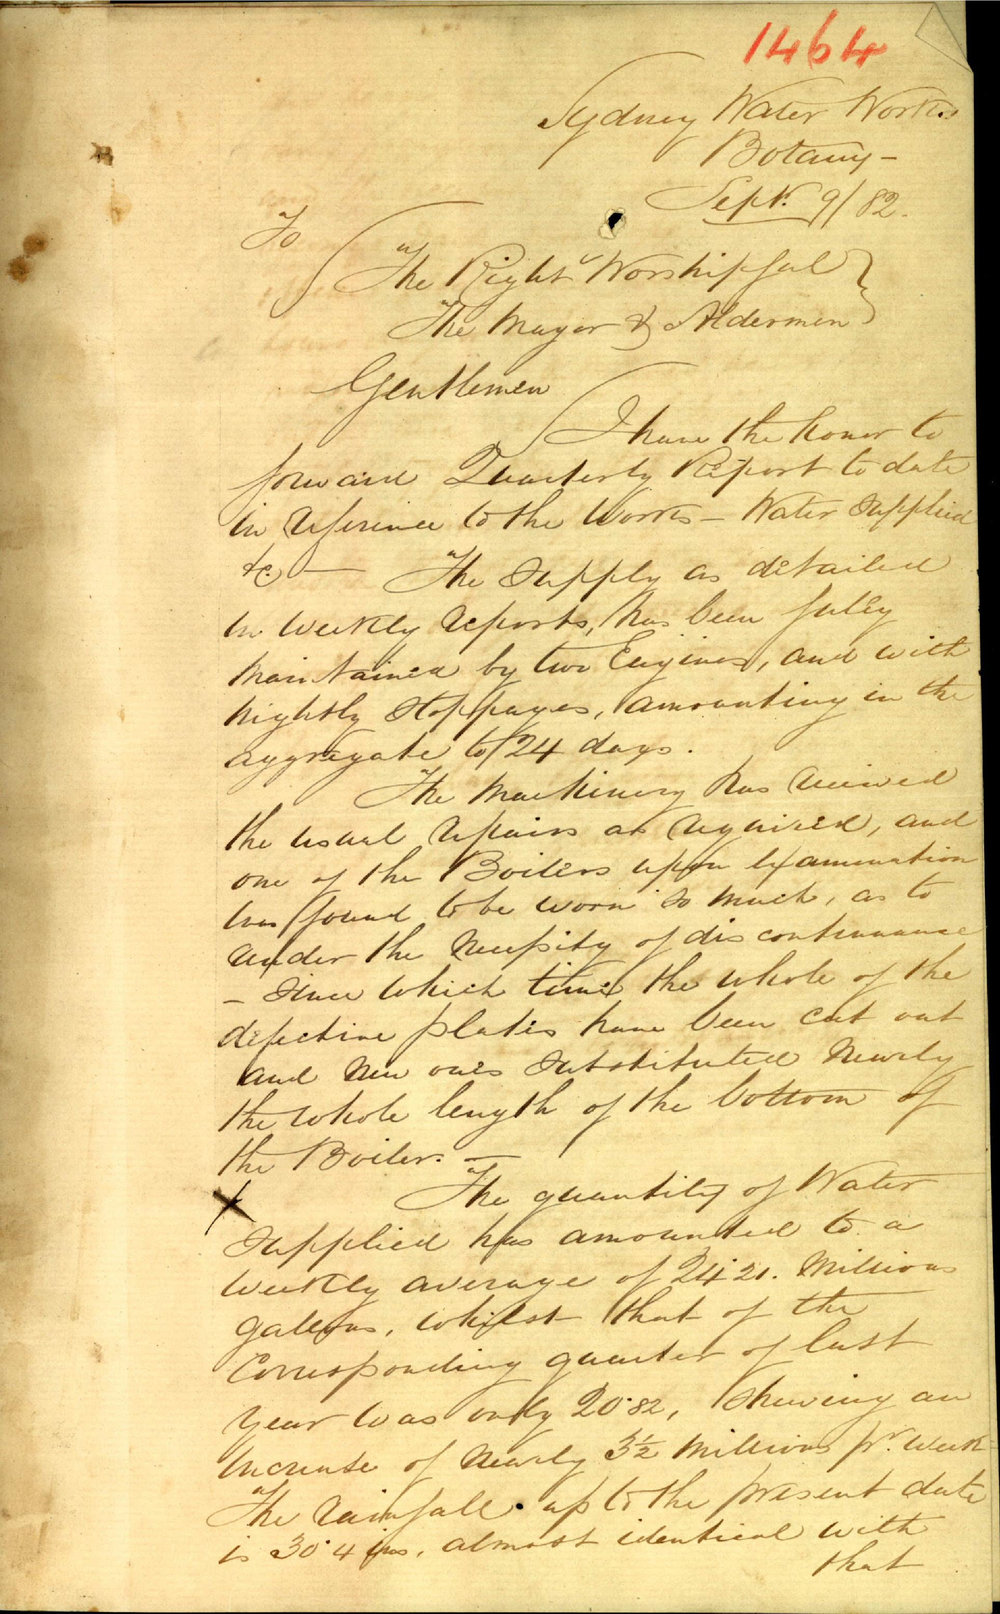 1464
Sydney Water Works
Botany –
Septr. 9/82.
To
The Right Worshipful
The Mayor & Aldermen
Gentlemen
I have the honor to
forward Quarterly Report to date
in reference to the Works – Water Supplied
&c – The supply as detailed
in weekly reports, has been fully
maintained by two Engines, and with
nightly stoppages, amounting in the
aggregate to 24 days.
The Machinery has received
the usual repairs as required, and
one of the Boilers upon examination
was found to be worn so much, as to
render the necessity of discontinuance
– Since which time the whole of the
defective plates have been cut out
and new ones substituted nearly
the whole length of the bottom of
the Boiler. –
The quantity of Water
supplied has amounted to a
weekly average of 24·21. Millions
gallons, whilst that of the
Corresponding quarter of last
year was only 20·82, shewing an
increase of nearly 3½ Millions pr. week
The rainfall up to the present date
is 30·4 ins. almost identical with
that